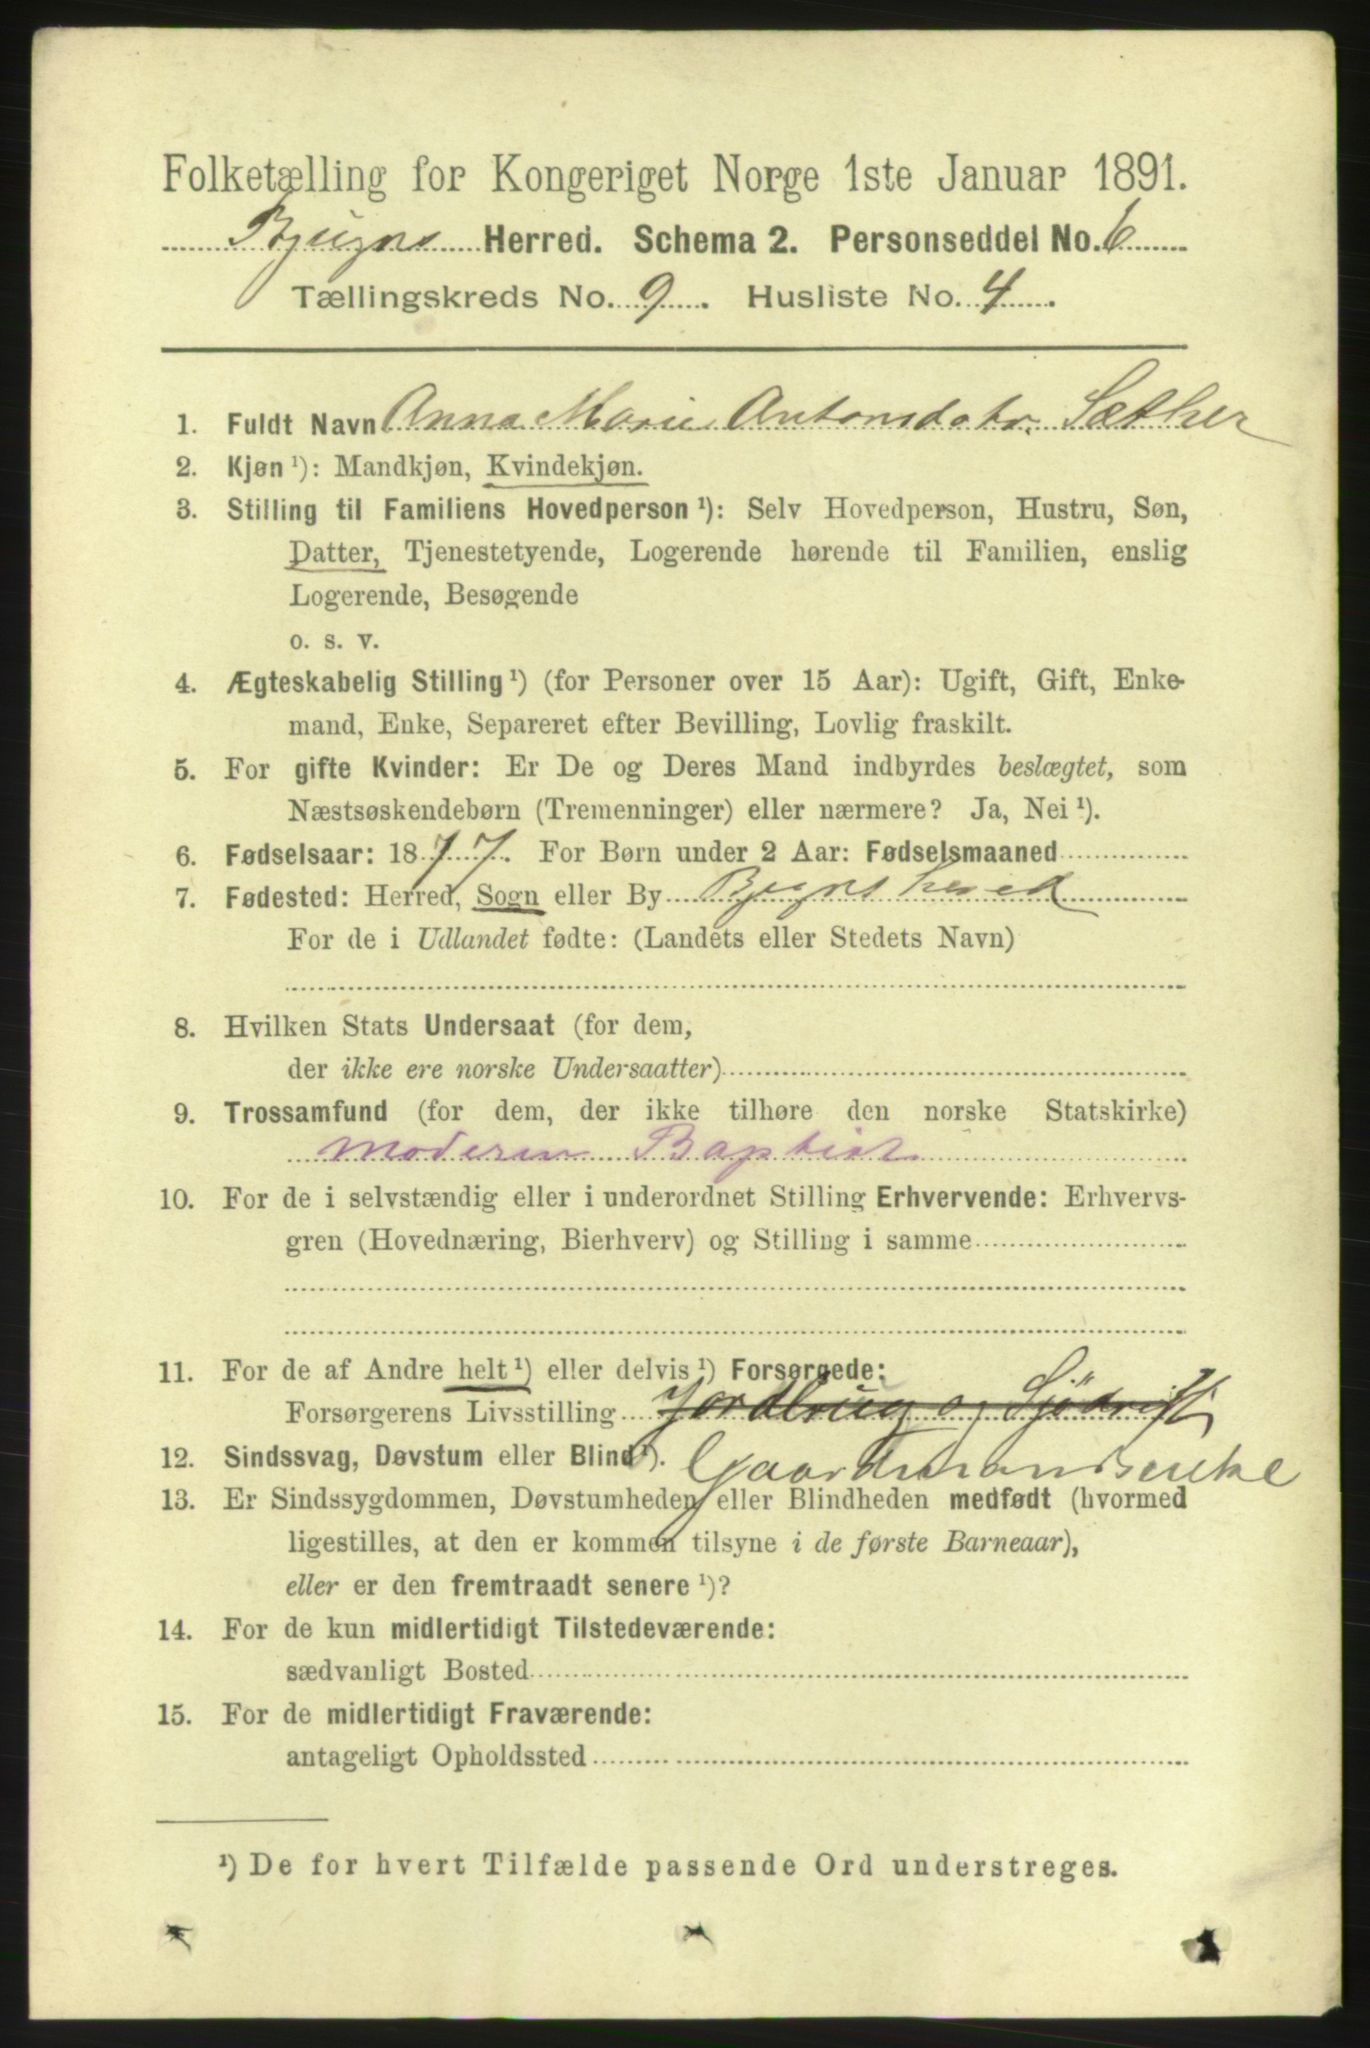 Folketælling for Kongeriget Norge 1ste Januar 1891.
Bjugns Herred. Schema 2. Personseddel No. 6
Tællingskreds No. 9. Husliste No. 4.
1. Fuldt Navn Anna Marie Antonsdatr. Sæther
2. Kjøn ¹): Mandkjøn, Kvindekjøn.
3. Stilling til Familiens Hovedperson ¹): Selv Hovedperson, Hustru, Søn,
Datter, Tjenestetyende, Logerende hørende til Familien, enslig
Logerende, Besøgende
o. s. v.
4. Ægteskabelig Stilling ¹) (for Personer over 15 Aar): Ugift, Gift, Enke-
mand, Enke, Separeret efter Bevilling, Lovlig fraskilt.
5. For gifte Kvinder: Er De og Deres Mand indbyrdes beslægtet, som
Næstsøskendebørn (Tremenninger) eller nærmere? Ja, Nei ¹).
6. Fødselsaar: 1877. For Børn under 2 Aar: Fødselsmaaned
7. Fødested: Herred, Sogn eller By Bjugns herred
For de i Udlandet fødte: (Landets eller Stedets Navn)
8. Hvilken Stats Undersaat (for dem,
der ikke ere norske Undersaatter)
9. Trossamfund (for dem, der ikke tilhøre den norske Statskirke)
Moderen Baptist
10. For de i selvstændig eller i underordnet Stilling Erhvervende: Erhvervs-
gren (Hovednæring, Bierhverv) og Stilling i samme
11. For de af Andre helt ¹) eller delvis ¹) Forsørgede:
Forsørgerens Livsstilling Jordbrug og Sjödrift
12. Sindssvag, Døvstum eller Blind ¹). Gaardmandsenke
13. Er Sindssygdommen, Døvstumheden eller Blindheden medfødt (hvormed
ligestilles, at den er kommen tilsyne i de første Barneaar),
eller er den fremtraadt senere ¹)?
14. For de kun midlertidigt Tilstedeværende:
sædvanligt Bosted
15. For de midlertidigt Fraværende:
antageligt Opholdssted
¹) De for hvert Tilfælde passende Ord understreges.